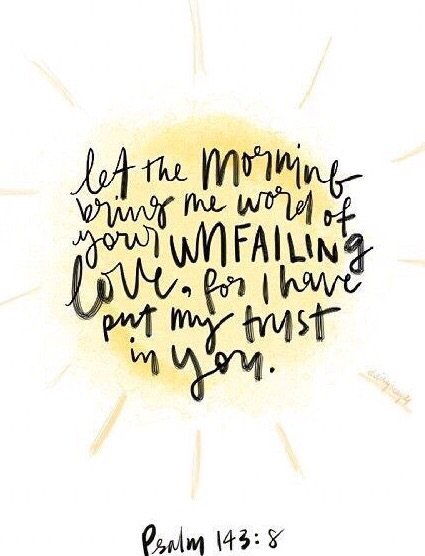 let the morning
bring me word of
your UNFAILING
love, for I have
put my trust
in you.
Psalm 143:8